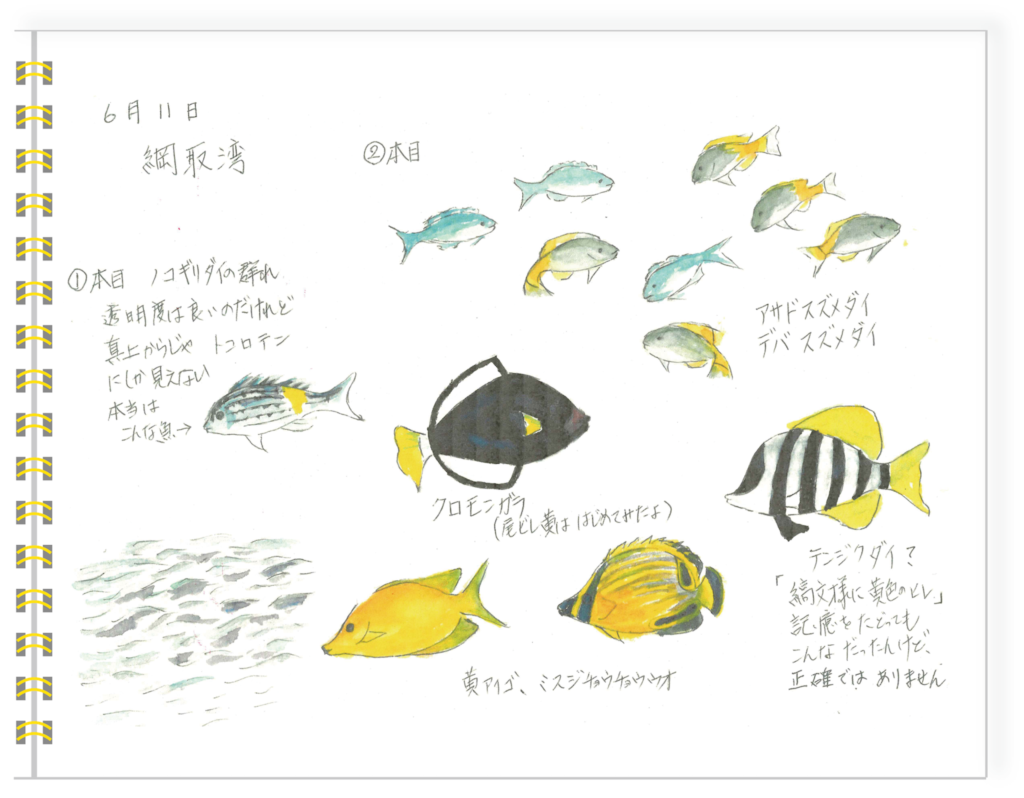 6月11日
綱取湾
①本目 ノコギリダイの群れ
透明度は良いのだけれど
真上からじゃ トコロテン
にしか見えない
本当は
こんな魚→
②本目
アサドスズメダイ
デバスズメダイ
クロモンガラ
(尾ビレ黄は はじめてみたよ)
黄アイゴ、ミスジチョウチョウウオ
テンジクダイ?
「縞文様に黄色のヒレ」
記憶をたどっても
こんなだったんけど、
正確ではありません